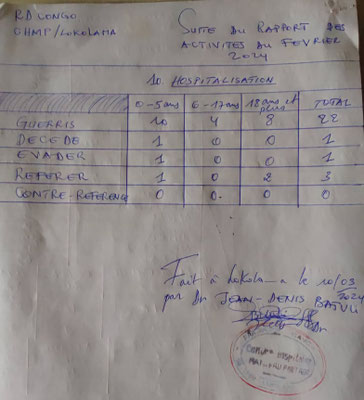 RD CONGO
CHMP/LOKOLAMA
SUITE DU RAPPORT DES
ACTIVITES DU FEVRIER
2024
10. HOSPITALISATION
0-5ans 6-17ans 18ans et plus TOTAL
GUERRIS 10 4 8 22
DECEDE 1 0 0 1
EVADER 1 0 0 1
REFERER 1 0 2 3
CONTRE-REFERENCE 0 0 0 0
Fait à Lokola_a le 10/03/2024
par Dr JEAN-DENIS BATULI